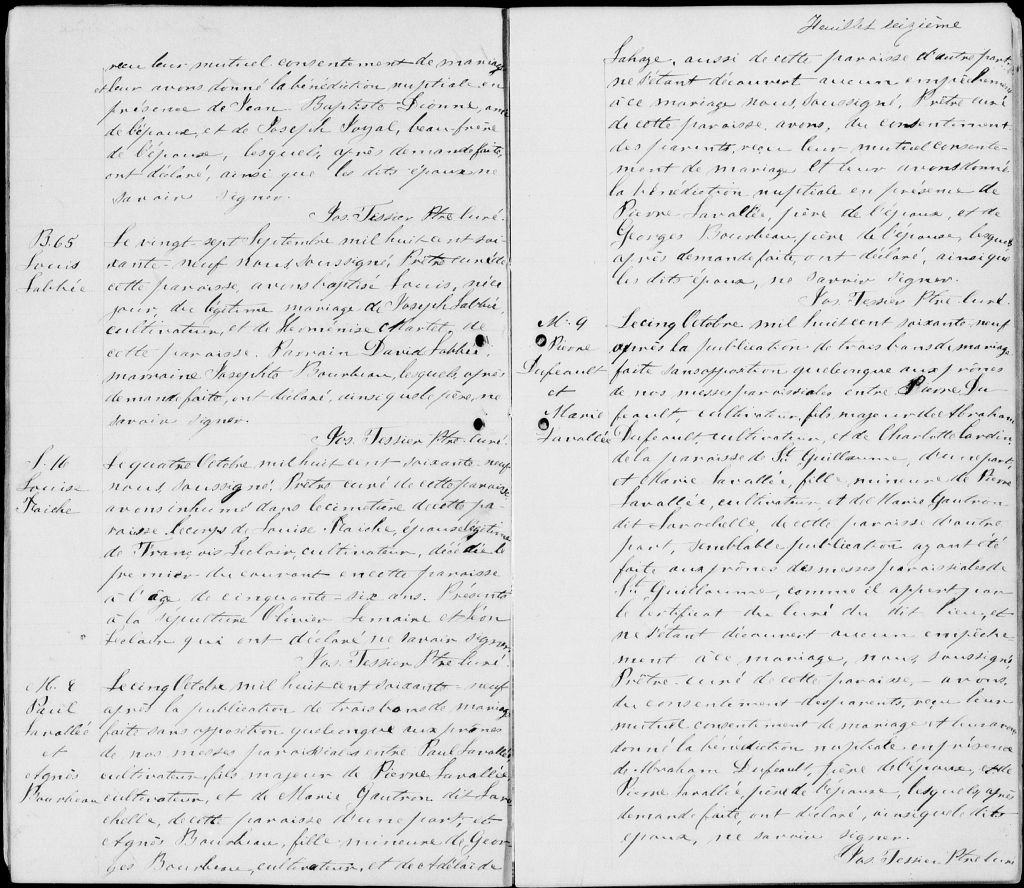 reçu leur mutuel consentement de mariage
et leur avons donné la bénédiction nuptiale en
présence de Jean Baptiste Dionne, ami
de l'époux, et de Joseph Joyal, beau-frère
de l'épouse, lesquels, après demande faite,
ont déclaré, ainsi que les dits époux ne
savoir signer.
Jos. Tessier Ptre Curé.
B. 65
Louis
Labbée
Le vingt-sept Septembre mil huit cent soi-
xante-neuf nous, soussigné, Prêtre curé de
cette paroisse, avons baptisé Louis, né ce
jour, du légitime mariage de Joseph Labbée,
cultivateur, et de Herménise Martel, de
cette paroisse. Parrain David Labbée,
marraine Josephte Bourbeau, lesquels, après
demande faite, ont déclaré, ainsi que le père, ne
savoir signer.
Jos. Tessier Ptre Curé.
S. 16
Louise
Raiche
Le quatre Octobre mil huit cent soixante-neuf
nous, soussigné, Prêtre curé de cette paroisse
avons inhumé dans le cimetière de cette pa-
roisse le corps de Louise Raiche, épouse légitime
de François Leclair, cultivateur, décédée le
premier du courant en cette paroisse
à l'âge de cinquante-six ans. Présents
à la sépulture Olivier Lemaire et Léon
Leclair qui ont déclaré ne savoir signer.
Jos. Tessier Ptre Curé.
M. 8
Paul
Lavallée
et
Agnès
Bourbeau
Le cinq Octobre mil huit cent soixante-neuf
après la publication de trois bans de mariage
faite sans opposition quelconque aux prônes
de nos messes paroissiales entre Paul Lavallée
cultivateur, fils majeur de Pierre Lavallée
cultivateur, et de Marie Gautron dit Laro
chelle, de cette paroisse d'une part, et
Agnès Bourbeau, fille mineure de Geor-
ges Bourbeau, cultivateur, et de Adélaïde
Feuillet seizième
Lahaye, aussi de cette paroisse d'autre part;
ne s'étant découvert aucun empêchement
à ce mariage nous, soussigné, Prêtre curé
de cette paroisse, avons, du consentement
des parents, reçu leur mutuel consente-
ment de mariage et leur avons donné
la bénédiction nuptiale en présence de
Pierre Lavallée, père de l'époux, et de
Georges Bourbeau, père de l'épouse, lesquels
après demande faite, ont déclaré, ainsi que
les dits époux, ne savoir signer.
Jos. Tessier Ptre Curé.
M. 9
Pierre
Dufeault
et
Marie
Lavallée
Le cinq Octobre mil huit cent soixante-neuf
après la publication de trois bans de mariage
faite sans opposition quelconque aux prônes
de nos messes paroissiales entre Pierre Du-
feault, cultivateur, fils majeur de Abraham
Dufeault, cultivateur, et de Charlotte Cardin,
de la paroisse de St. Guillaume, d'une part,
et Marie Lavallée, fille mineure de Pierre
Lavallée, cultivateur, et de Marie Gautron
dit Larochelle, de cette paroisse d'autre
part, semblable publication ayant été
faite aux prônes des messes paroissiales de
St. Guillaume, comme il appert par
le certificat du Curé du dit lieu, et
ne s'étant découvert aucun empêche-
ment à ce mariage, nous, soussigné
Prêtre-curé de cette paroisse, - avons,
du consentement des parents, reçu leur
mutuel consentement de mariage et leur avons
donné la bénédiction nuptiale en présence
de Abraham Dufeault, père de l'époux, et de
Pierre Lavallée, père de l'épouse, lesquels, après
demande faite, ont déclaré, ainsi que les dits
époux, ne savoir signer.
Jos. Tessier Ptre Curé